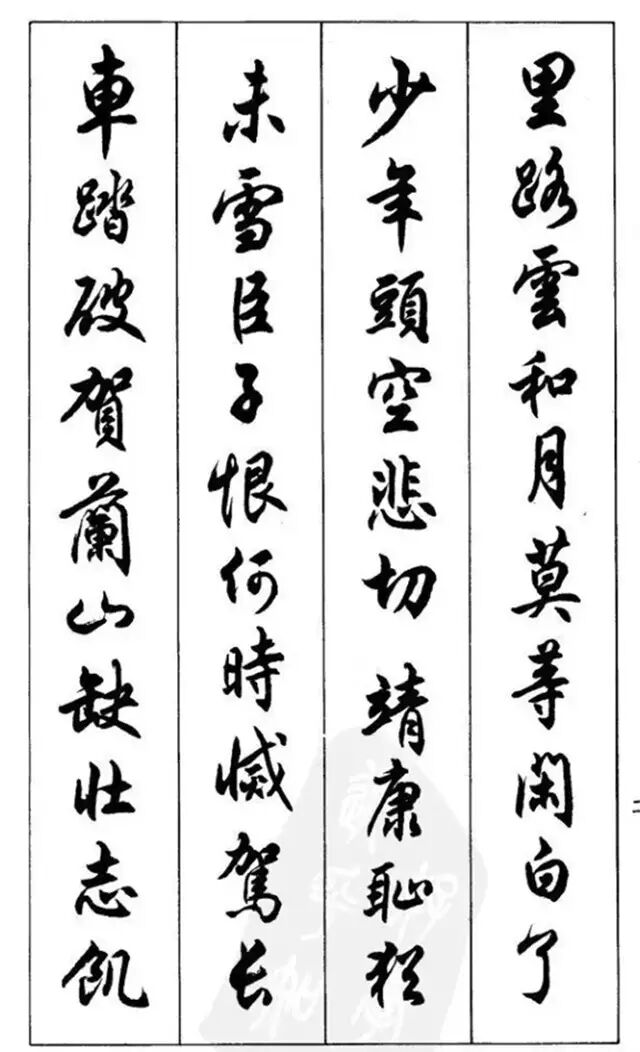 里路雲和月莫等閑白了
少年頭空悲切靖康恥猶
未雪臣子恨何時憾駕长
車踏破賀蘭山缺壯志飢